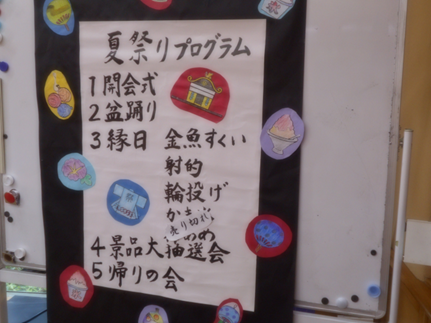 夏祭りプログラム
1開会式
2盆踊り
3縁日 金魚すくい
射的
輪投げ
か
売り切れ
め
4景品大抽送会
5帰りの会